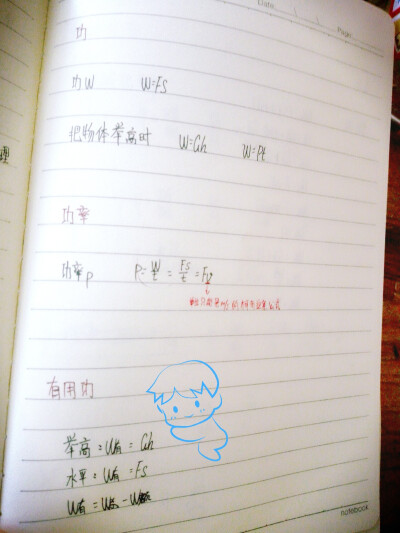 Date
Page:
功
功W W=Fs
把物体举高时 W=Gh W=Pt
理
功率
功率P P=W/t=Fs/t=Fv
有用功
举高:W有=Gh
水平:W有=Fs
W有=W总-W额
notebook